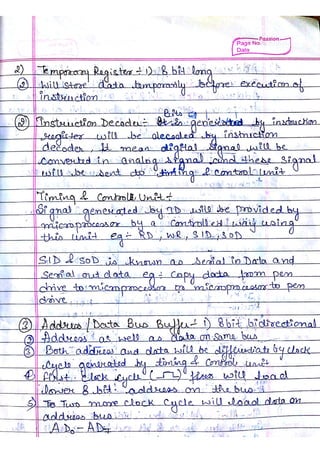 Passion
Page No
Date
2) Temporary Register ÷ 1) 8 bit long
② Will store data temporarily before execution of
instruction
Bits of
② Instruction Decoder ÷ generated by instruction
register will be decoded by instruction
decoder, It mean digital signal will be
converted in analog signal and these signal
will be sent to timing & control unit
Timing & Control Unit ÷
Signal generated by ID will be provided by
microprocessor by a controlled way using
this unit eg ÷ RD, WR, SID, SOD
SID & SOD is known as serial in Data and
Serial out data eg ÷ Copy data from pen
drive to microprocessor or microprocessor to pen
drive.
③ Address / Data Bus Buffer ÷ 1) 8 bit bidirectional
② Address as well as data on same bus
③ Both address and data will be differentiate by clock
cycle generated by timing & Control unit
4) first clock cycle ( ) will load
lower 8 bit address on the bus
5) Two more clock cycle will load data on
address bus
AD₀ - AD₇